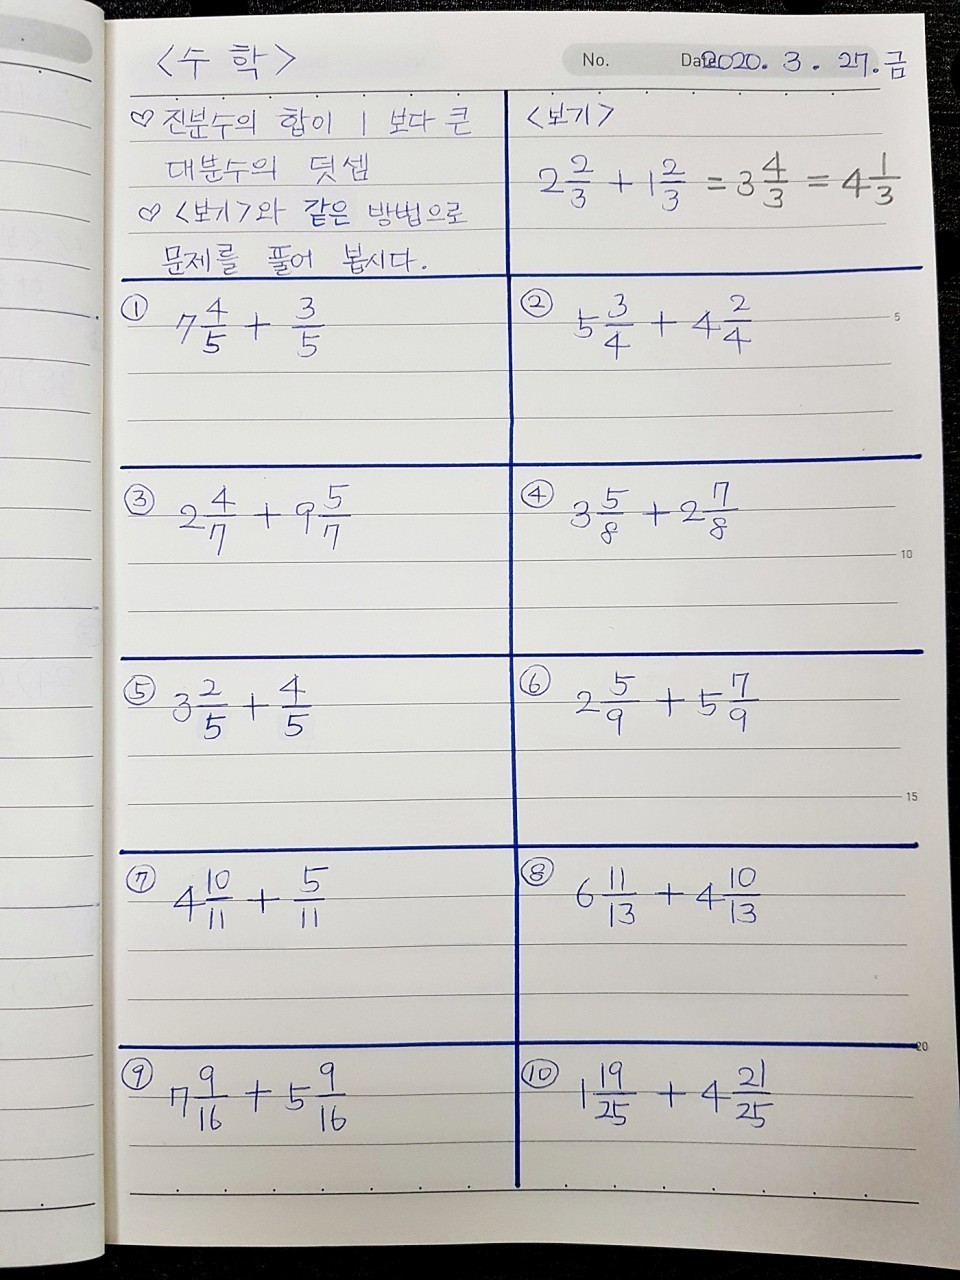 <수 학>
No. Date 2020. 3. 27. 금
♡ 진분수의 합이 1 보다 큰
대분수의 덧셈
♡ <보기>와 같은 방법으로
문제를 풀어 봅시다.
<보기>
2 2/3 + 1 2/3 = 3 4/3 = 4 1/3
① 7 4/5 + 3/5
② 5 3/4 + 4 2/4
5
③ 2 4/7 + 9 5/7
④ 3 5/8 + 2 7/8
10
⑤ 3 2/5 + 4/5
⑥ 2 5/9 + 5 7/9
15
⑦ 4 10/11 + 5/11
⑧ 6 11/13 + 4 10/13
20
⑨ 7 9/16 + 5 9/16
⑩ 1 19/25 + 4 21/25